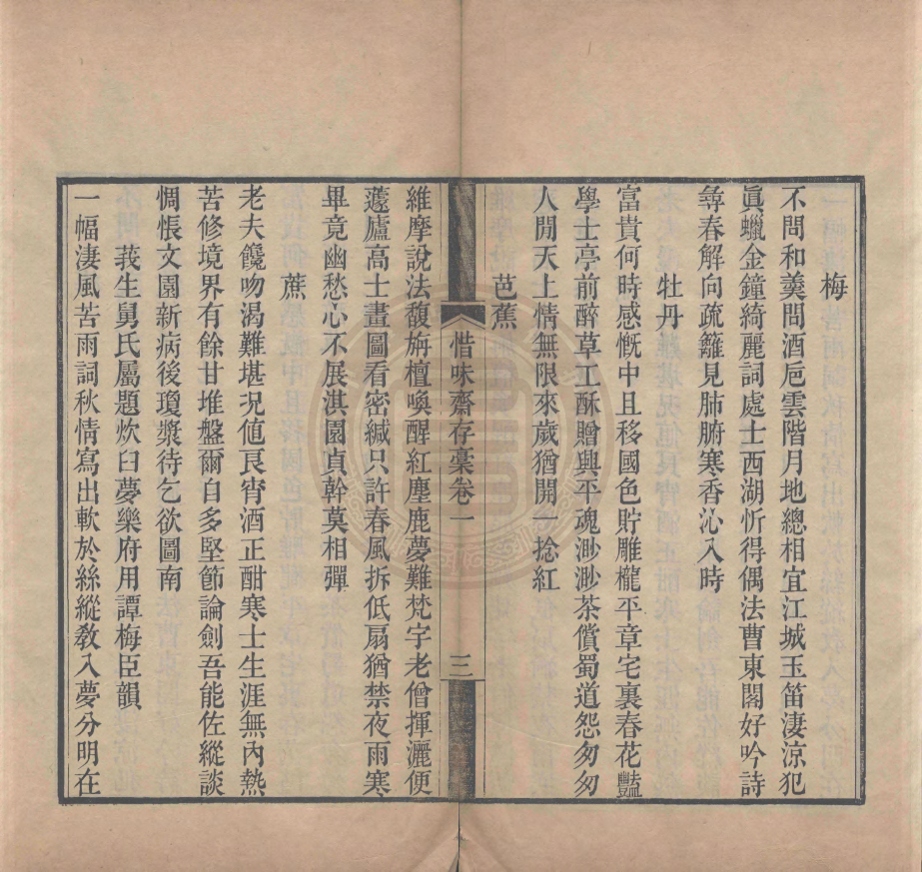 梅
不問和羹問酒巵雲階月地總相宜江城玉笛淒涼犯
眞蠟金鐘綺麗詞處士西湖忻得偶法曹東閣好吟詩
尋春解向疏籬見肺腑寒香沁入時
牡丹
富貴何時感慨中且移國色貯雕櫳平章宅裏春花豔
學士亭前醉草工酥贈興平魂渺渺茶償蜀道怨匆匆
人閒天上情無限來歲猶開一捻紅
芭蕉
惜味齋存稾卷一
三
維摩說法馥旃檀喚醒紅塵鹿夢難梵字老僧揮灑便
蘧廬高士畫圖看密緘只許春風拆低扇猶禁夜雨寒
畢竟幽愁心不展淇園貞幹莫相彈
蔗
老夫饞吻渴難堪况値良宵酒正酣寒士生涯無內熱
苦修境界有餘甘堆盤爾自多堅節論劍吾能佐縱談
惆悵文園新病後瓊漿待乞欲圖南
莪生舅氏屬題炊臼夢樂府用譚梅臣韻
一幅淒風苦雨詞秋情寫出軟於絲縱敎入夢分明在